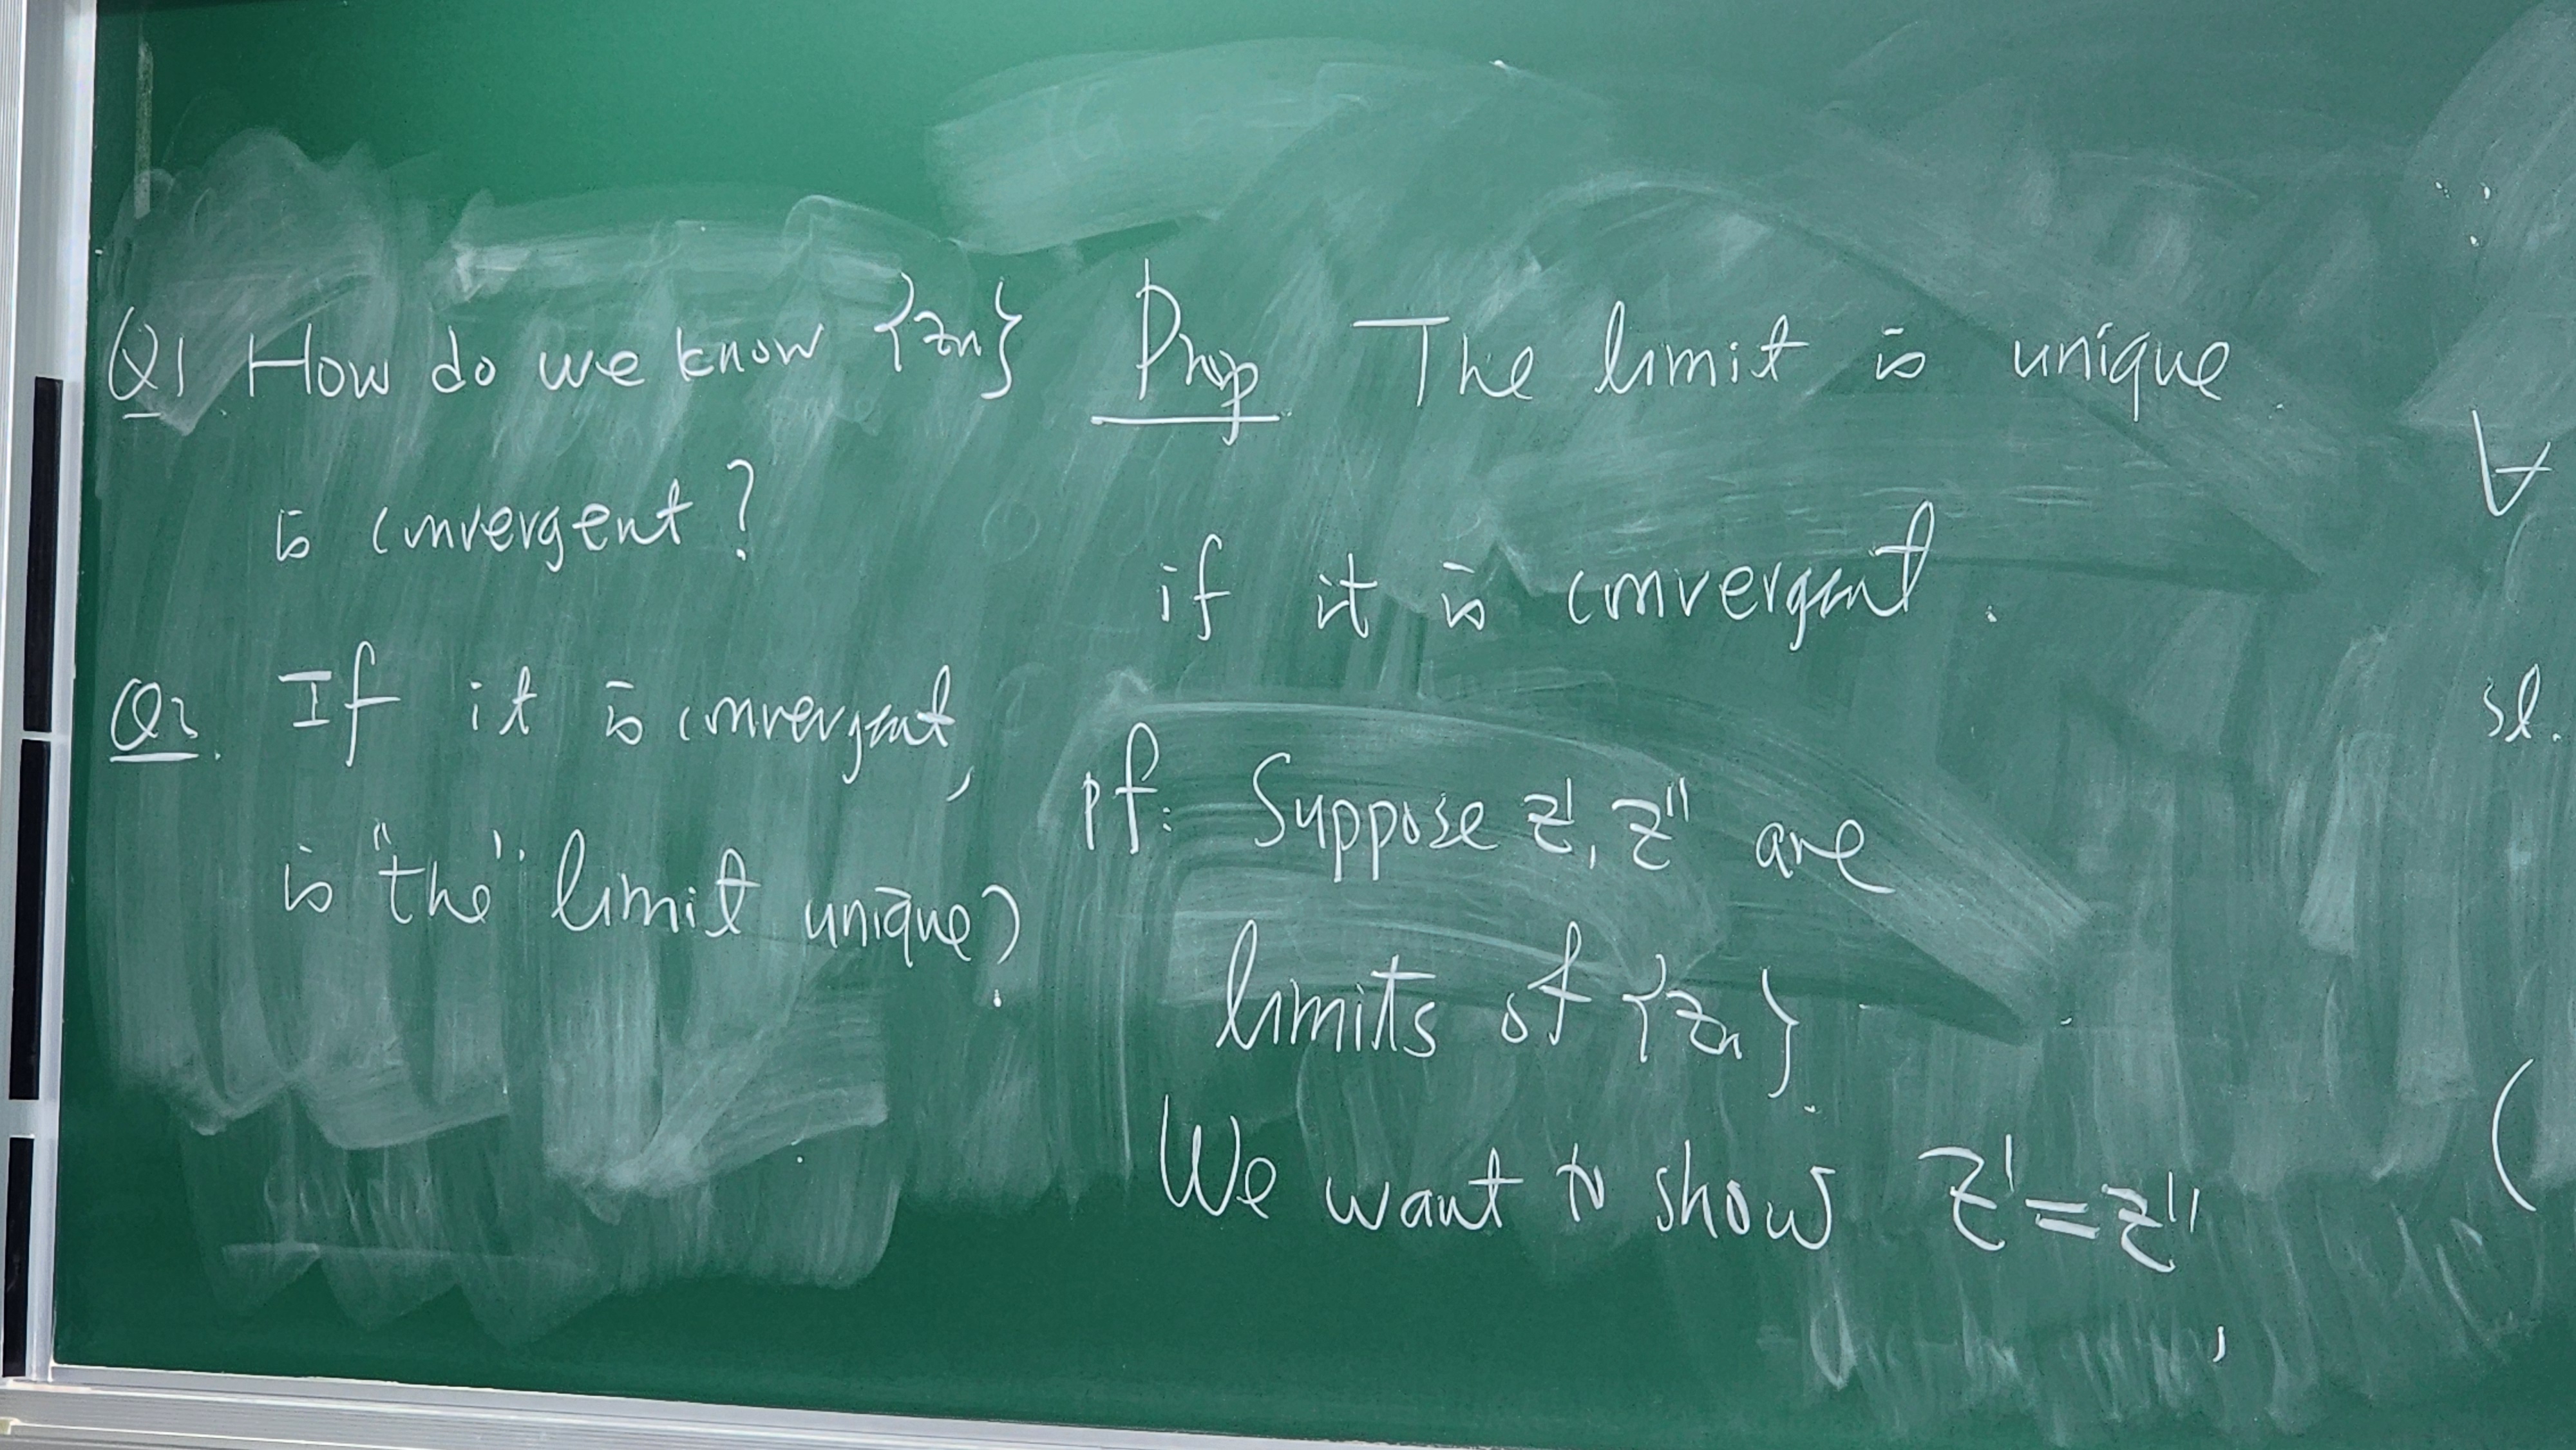 Q1 How do we know {zn}
is convergent?
Q2. If it is convergent,
is "the" limit unique?
Prop The limit is unique
if it is convergent.
pf: Suppose z', z" are
limits of {zn}.
We want to show z' = z",
∀
st.
(